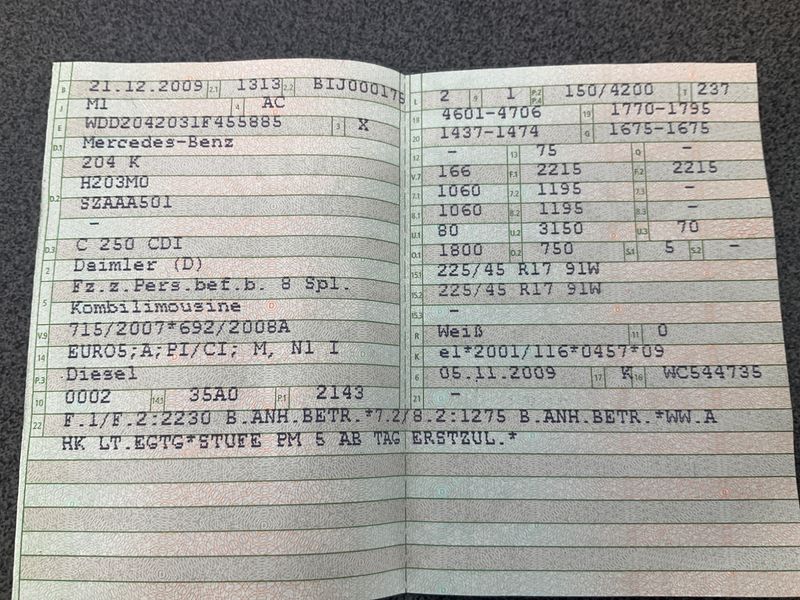 B 21.12.2009 2.1 1313 2.2 BIJ000175
J M1 4 AC
E WDD2042031F455885 3 X
D.1 Mercedes-Benz
204 K
H203M0
D.2 SZAAA501
-
D.3 C 250 CDI
2 Daimler (D)
Fz.z.Pers.bef.b. 8 Spl.
5 Kombilimousine
V.9 715/2007*692/2008A
14 EURO5;A;PI/CI; M, N1 I
P.3 Diesel
10 0002 14.1 35A0 P.1 2143
L 2 9 1 P.2 P.4 150/4200 T 237
18 4601-4706 19 1770-1795
20 1437-1474 G 1675-1675
12 - 13 75 Q -
V.7 166 F.1 2215 F.2 2215
7.1 1060 7.2 1195 7.3 -
8.1 1060 8.2 1195 8.3 -
U.1 80 U.2 3150 U.3 70
O.1 1800 O.2 750 S.1 5 S.2 -
15.1 225/45 R17 91W
15.2 225/45 R17 91W
15.3 -
R Weiß 11 0
K e1*2001/116*0457*09
6 05.11.2009 17 K 16 WC544735
21 -
22 F.1/F.2:2230 B.ANH.BETR.*7.2/8.2:1275 B.ANH.BETR.*WW.A
HK LT.EGTG*STUFE PM 5 AB TAG ERSTZUL.*